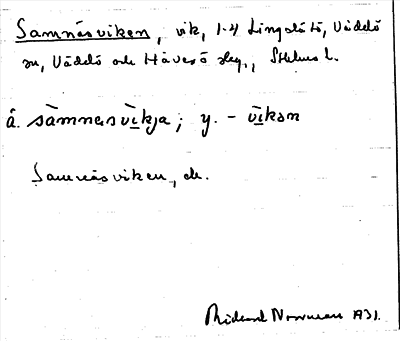 Samnäsviken, vik, 1-4 Lingslätö, Väddö
sn, Väddö och Häverö skg., Sthlms l.
å. sàmnasvìkja; y. - vìkən
Samnäsviken, ds.
Rickard Norrman 1931.